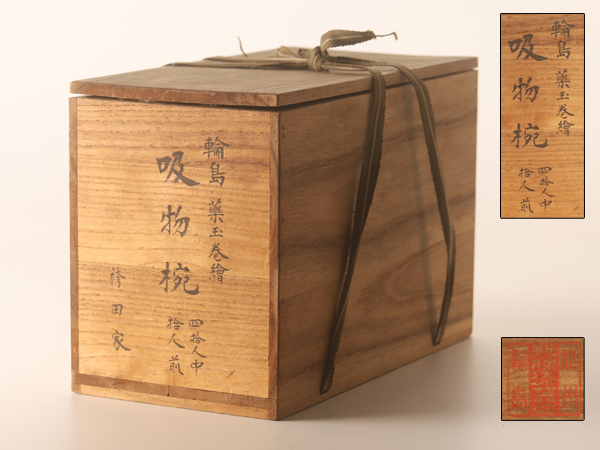 輪島 藥玉巻繪
吸物椀
四拾人中
拾人前
田家
輪島 藥玉巻繪
吸物椀
四拾人中
拾人前